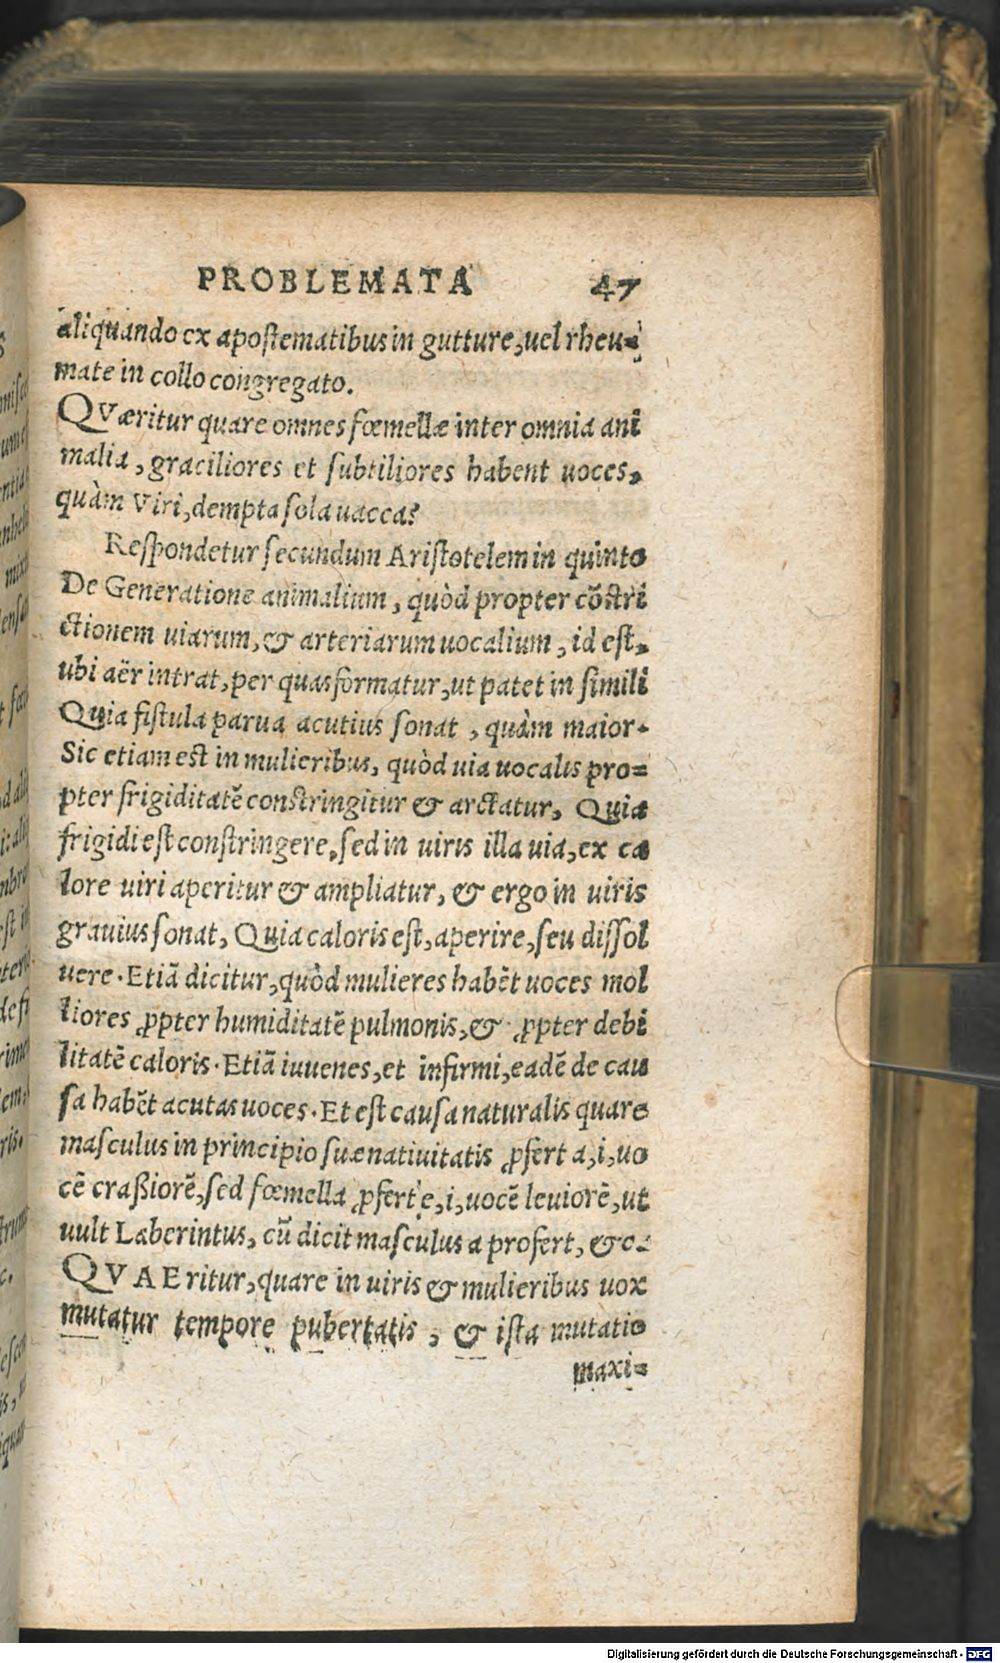 PROBLEMATA 47
aliquando ex apostematibus in gutture, uel rheu=
mate in collo congregato.
QVæritur quare omnes fœmellæ inter omnia ani
malia, graciliores et subtiliores habent uoces,
quàm Viri, dempta sola uacca?
Respondetur secundum Aristotelem in quinto
De Generatione animalium, quòd propter cõstri
ctionem uiarum, & arteriarum uocalium, id est,
ubi aër intrat, per quas formatur, ut patet in simili
Quia fistula parua acutius sonat, quàm maior.
Sic etiam est in mulieribus, quòd uia uocalis pro=
pter frigiditatẽ constringitur & arctatur, Quia
frigidi est constringere, sed in uiris illa uia, ex ca
lore uiri aperitur & ampliatur, & ergo in uiris
grauius sonat, Quia caloris est, aperire, seu dissol
uere. Etiã dicitur, quòd mulieres habẽt uoces mol
liores ꝓpter humiditatẽ pulmonis, & ꝓpter debi
litatẽ caloris. Etiã iuuenes, et infirmi, eadẽ de cau
sa habẽt acutas uoces. Et est causa naturalis quare
masculus in principio suæ natiuitatis ꝓfert a, i, uo
cẽ craßiorẽ, sed fœmella ꝓfert e, i, uocẽ leuiorẽ, ut
uult Laberintus, cũ dicit masculus a profert, &c.
QVAEritur, quare in uiris & mulieribus uox
mutatur tempore pubertatis, & ista mutatio
maxi=
Digitalisierung gefördert durch die Deutsche Forschungsgemeinschaft - DFG